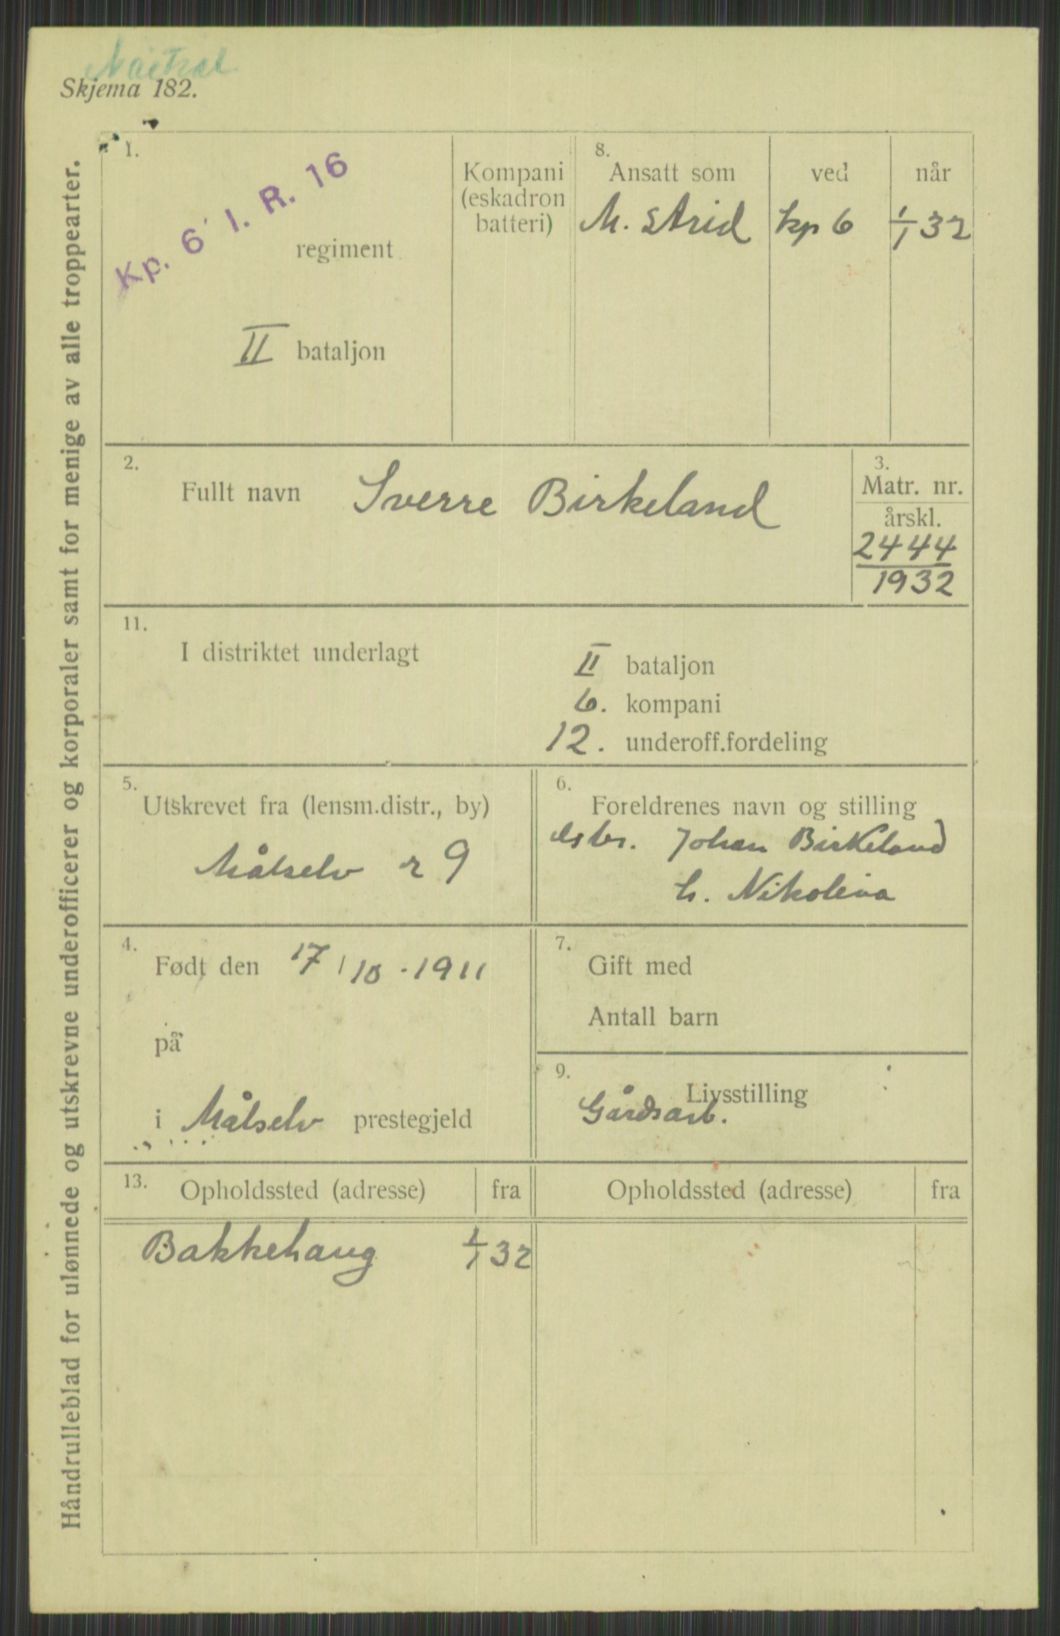 Skjema 182.
Håndrulleblad for ulønnede og utskrevne underofficerer og korporaler samt for menige av alle troppearter.
1.
Kp. 6 I. R. 16
regiment
II bataljon
Kompani
(eskadron
batteri)
8.
Ansatt som
M. strid
ved
kp 6
når
1/1 32
2.
Fullt navn Sverre Birkeland
3.
Matr. nr.
årskl.
2444
1932
11.
I distriktet underlagt
II bataljon
6. kompani
12. underoff.fordeling
5.
Utskrevet fra (lensm.distr., by)
Målselv r 9
6.
Foreldrenes navn og stilling
Johan Birkeland
h. Nikolina
4.
Født den 17/10-1911
på
i Målselv prestegjeld
7.
Gift med
Antall barn
9.
Livsstilling
Gårdsarb.
13.
Opholdssted (adresse) fra
Bakkehaug 1/1 32
Opholdssted (adresse) fra